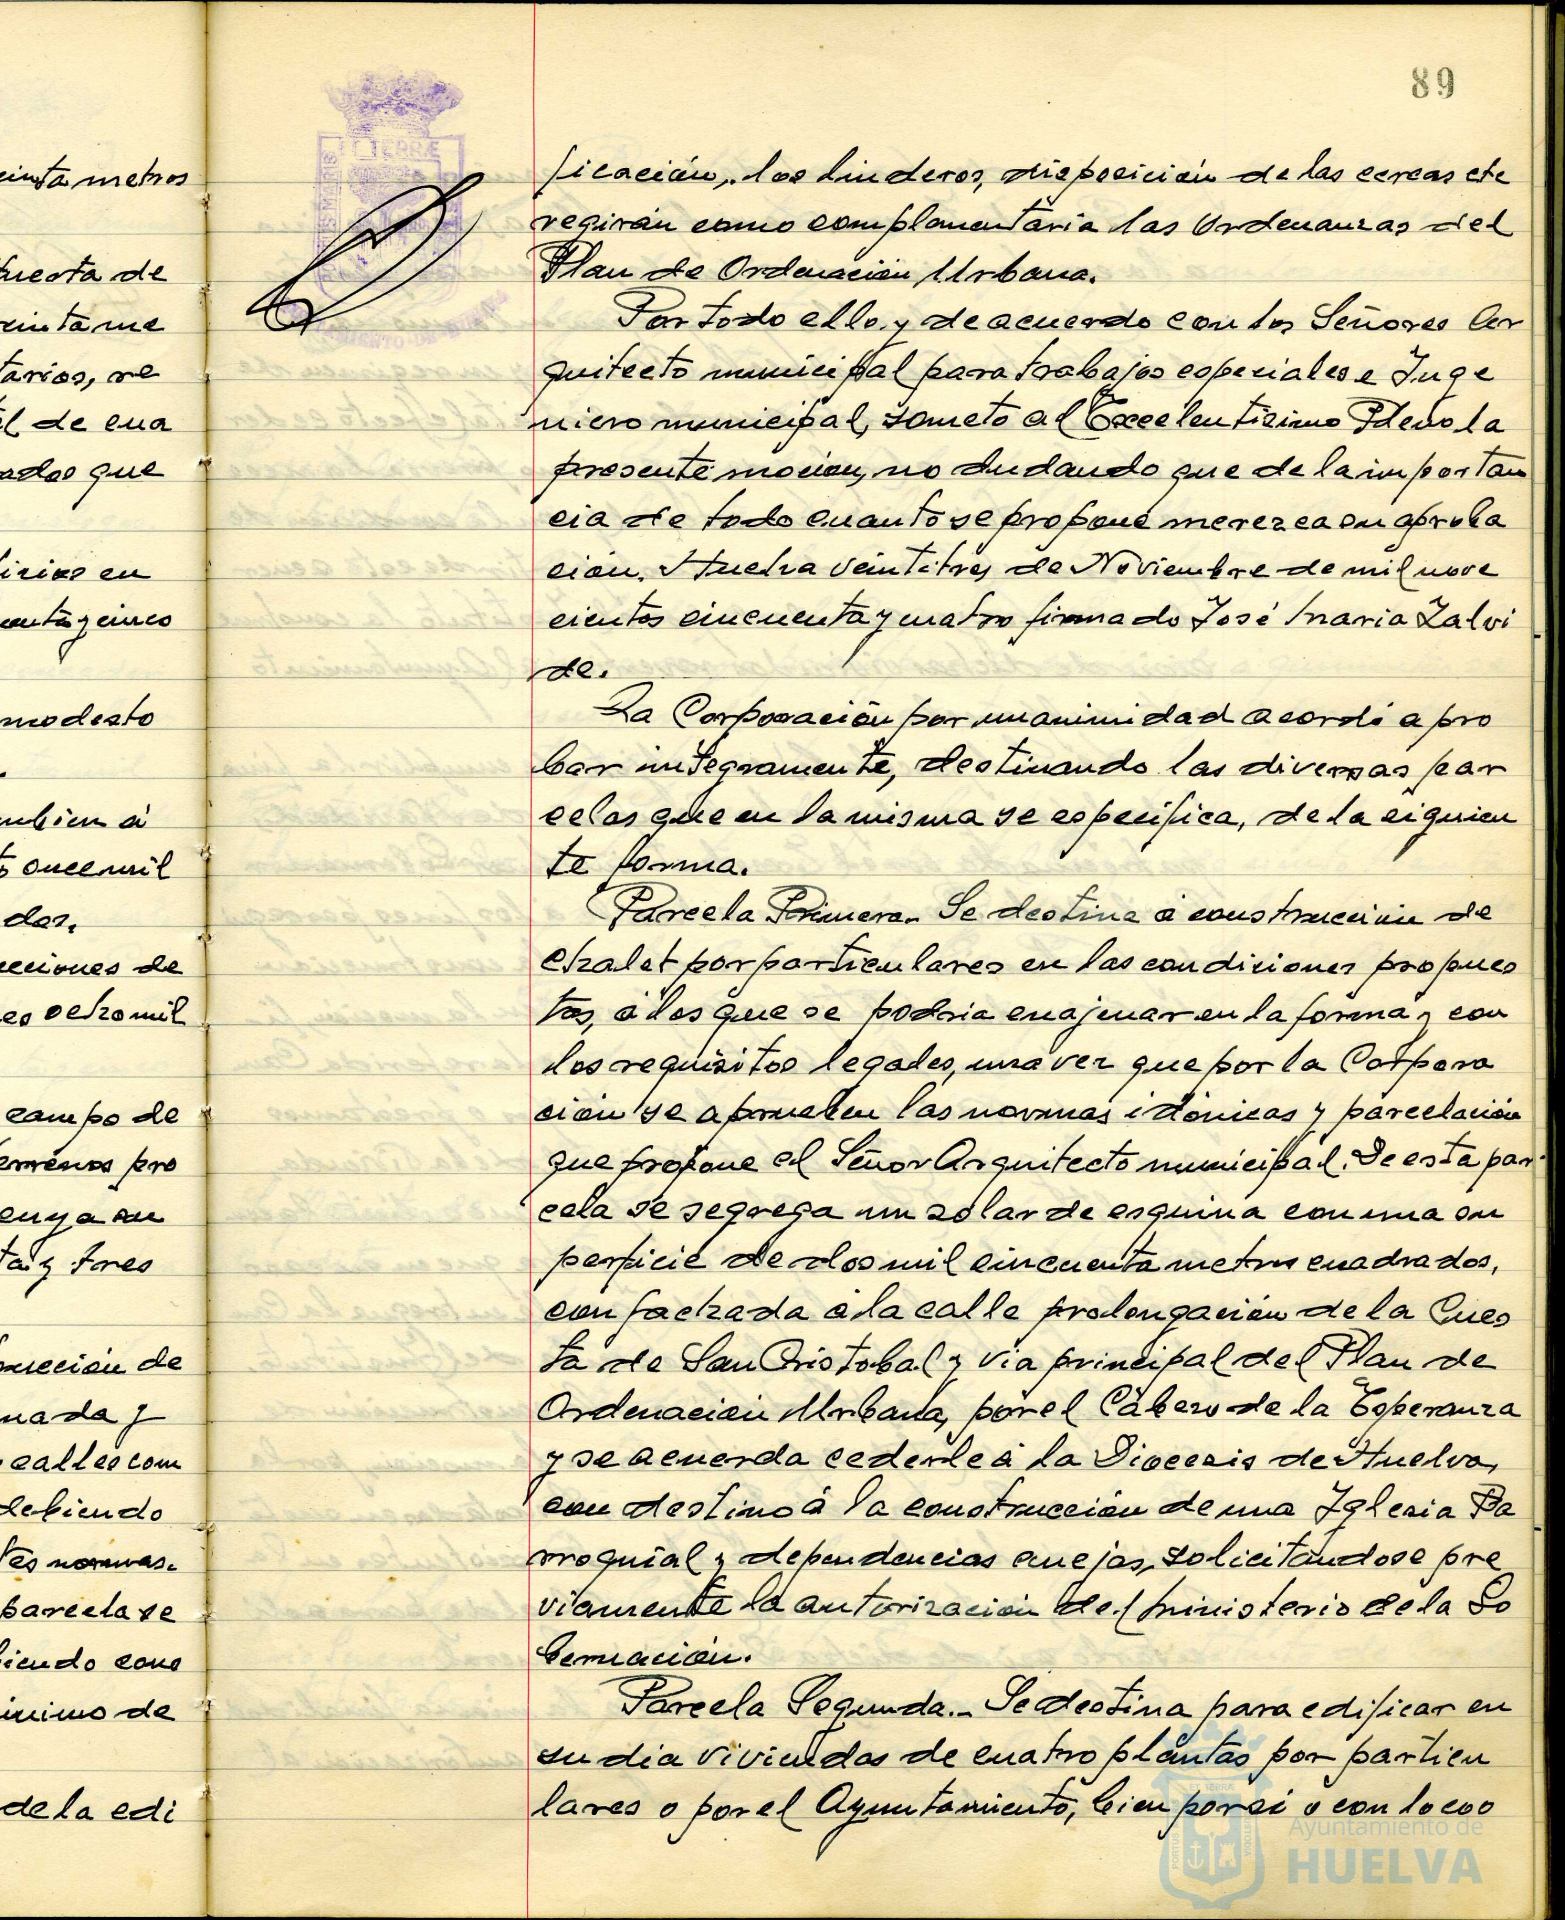 89
einta metros
puesta de
einta me
tarios, re
el de cua
ados que
dicios en
enta y cinco
modesto
mbien á
to oncemil
dos.
ucciones de
es ochomil
campo de
terrenos pro
cuya su
ta y tres
trucción de
nada y
calles com
debiendo
tes normas.
parcela se
biendo como
inimo de
de la edi
ET TERRÆ
PORTUS MARIS
AYUNTAMIENTO DE HUELVA
ficación, los linderos, disposición de las cercas etc
regirán como complementaria las Ordenanzas del
Plan de Ordenación Urbana.
Por todo ello y de acuerdo con los Señores Ar
quitecto municipal para trabajos especiales e Inge
niero municipal, someto al Excelentísimo Pleno la
presente mocion, no dudando que de la importan
cia de todo cuanto se propone merezca su aproba
ción. Huelva veintitres de Noviembre de mil nove
cientos cincuenta y cuatro firmado José Maria Zalvi
de.
La Corporación por unanimidad acordó apro
bar integramente, destinando las diversas par
celas que en la misma se especifica, de la siguien
te forma.
Parcela Primera.- Se destina á construcción de
chalet por particulares en las condiciones propues
tas, á los que se podria enajenar en la forma y con
los requisitos legales, una vez que por la Corpora
ción se aprueben las normas idónicas y parcelación
que propone el Señor Arquitecto municipal. De esta par
cela se segrega un solar de esquina con una su
perficie de dos mil cincuenta metros cuadrados,
con fachada á la calle prolongación de la Cues
ta de San Cristobal y via principal del Plan de
Ordenación Urbana, por el Cabezo de la Esperanza
y se acuerda cederle á la Diocesis de Huelva,
con destino á la construcción de una Iglesia Pa
rroquial y dependencias anejas, solicitandose pre
viamente la autorización del Ministerio de la Go
bernación.
Parcela Segunda.- Se destina para edificar en
su dia viviendas de cuatro plantas por particu
lares o por el Ayuntamiento, bien por si o con los co
Ayuntamiento de
HUELVA